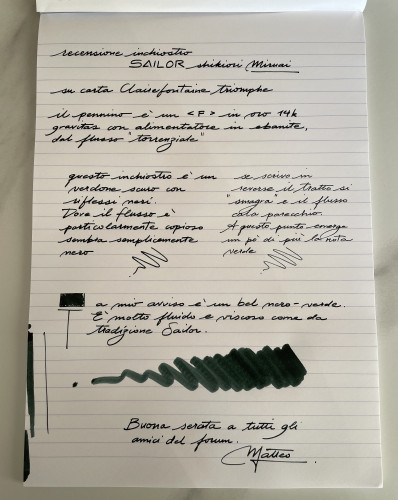 recensione inchiostro
SAILOR shikiori Miruai
su carta Clairefontaine triomphe
il pennino è un <F> in oro 14k
gravitas con alimentatore in ebanite,
dal flusso "torrenziale"
questo inchiostro è un
verdone scuro con
riflessi neri.
Dove il flusso è
particolarmente copioso
sembra semplicemente
nero
se scrivo in
reverse il tratto si
"smagra" e il flusso
cala parecchio.
A questo punto emerge
un pò di più la nota
verde
a mio avviso è un bel nero-verde.
È molto fluido e viscoso come da
tradizione Sailor.
Buona serata a tutti gli
amici del forum.
Matteo